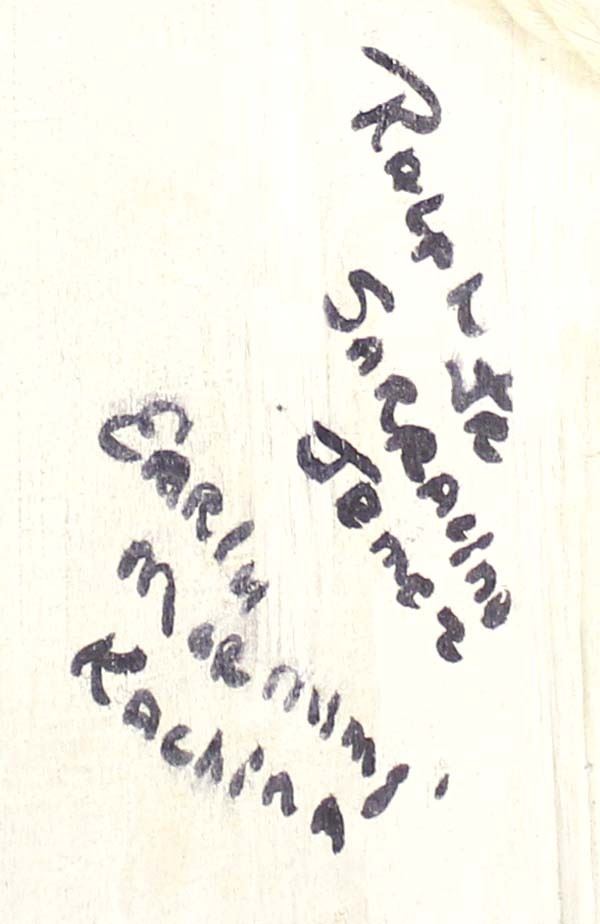 Ralph Jr
Sarracino
Jemez
Early
Morning.
Kachina